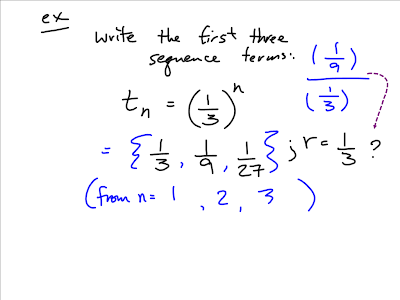 ex
Write the first three
sequence terms:
(1/9)
(1/3)
tn = (1/3)^n
= {1/3, 1/9, 1/27}; r = 1/3 ?
(from n = 1, 2, 3)